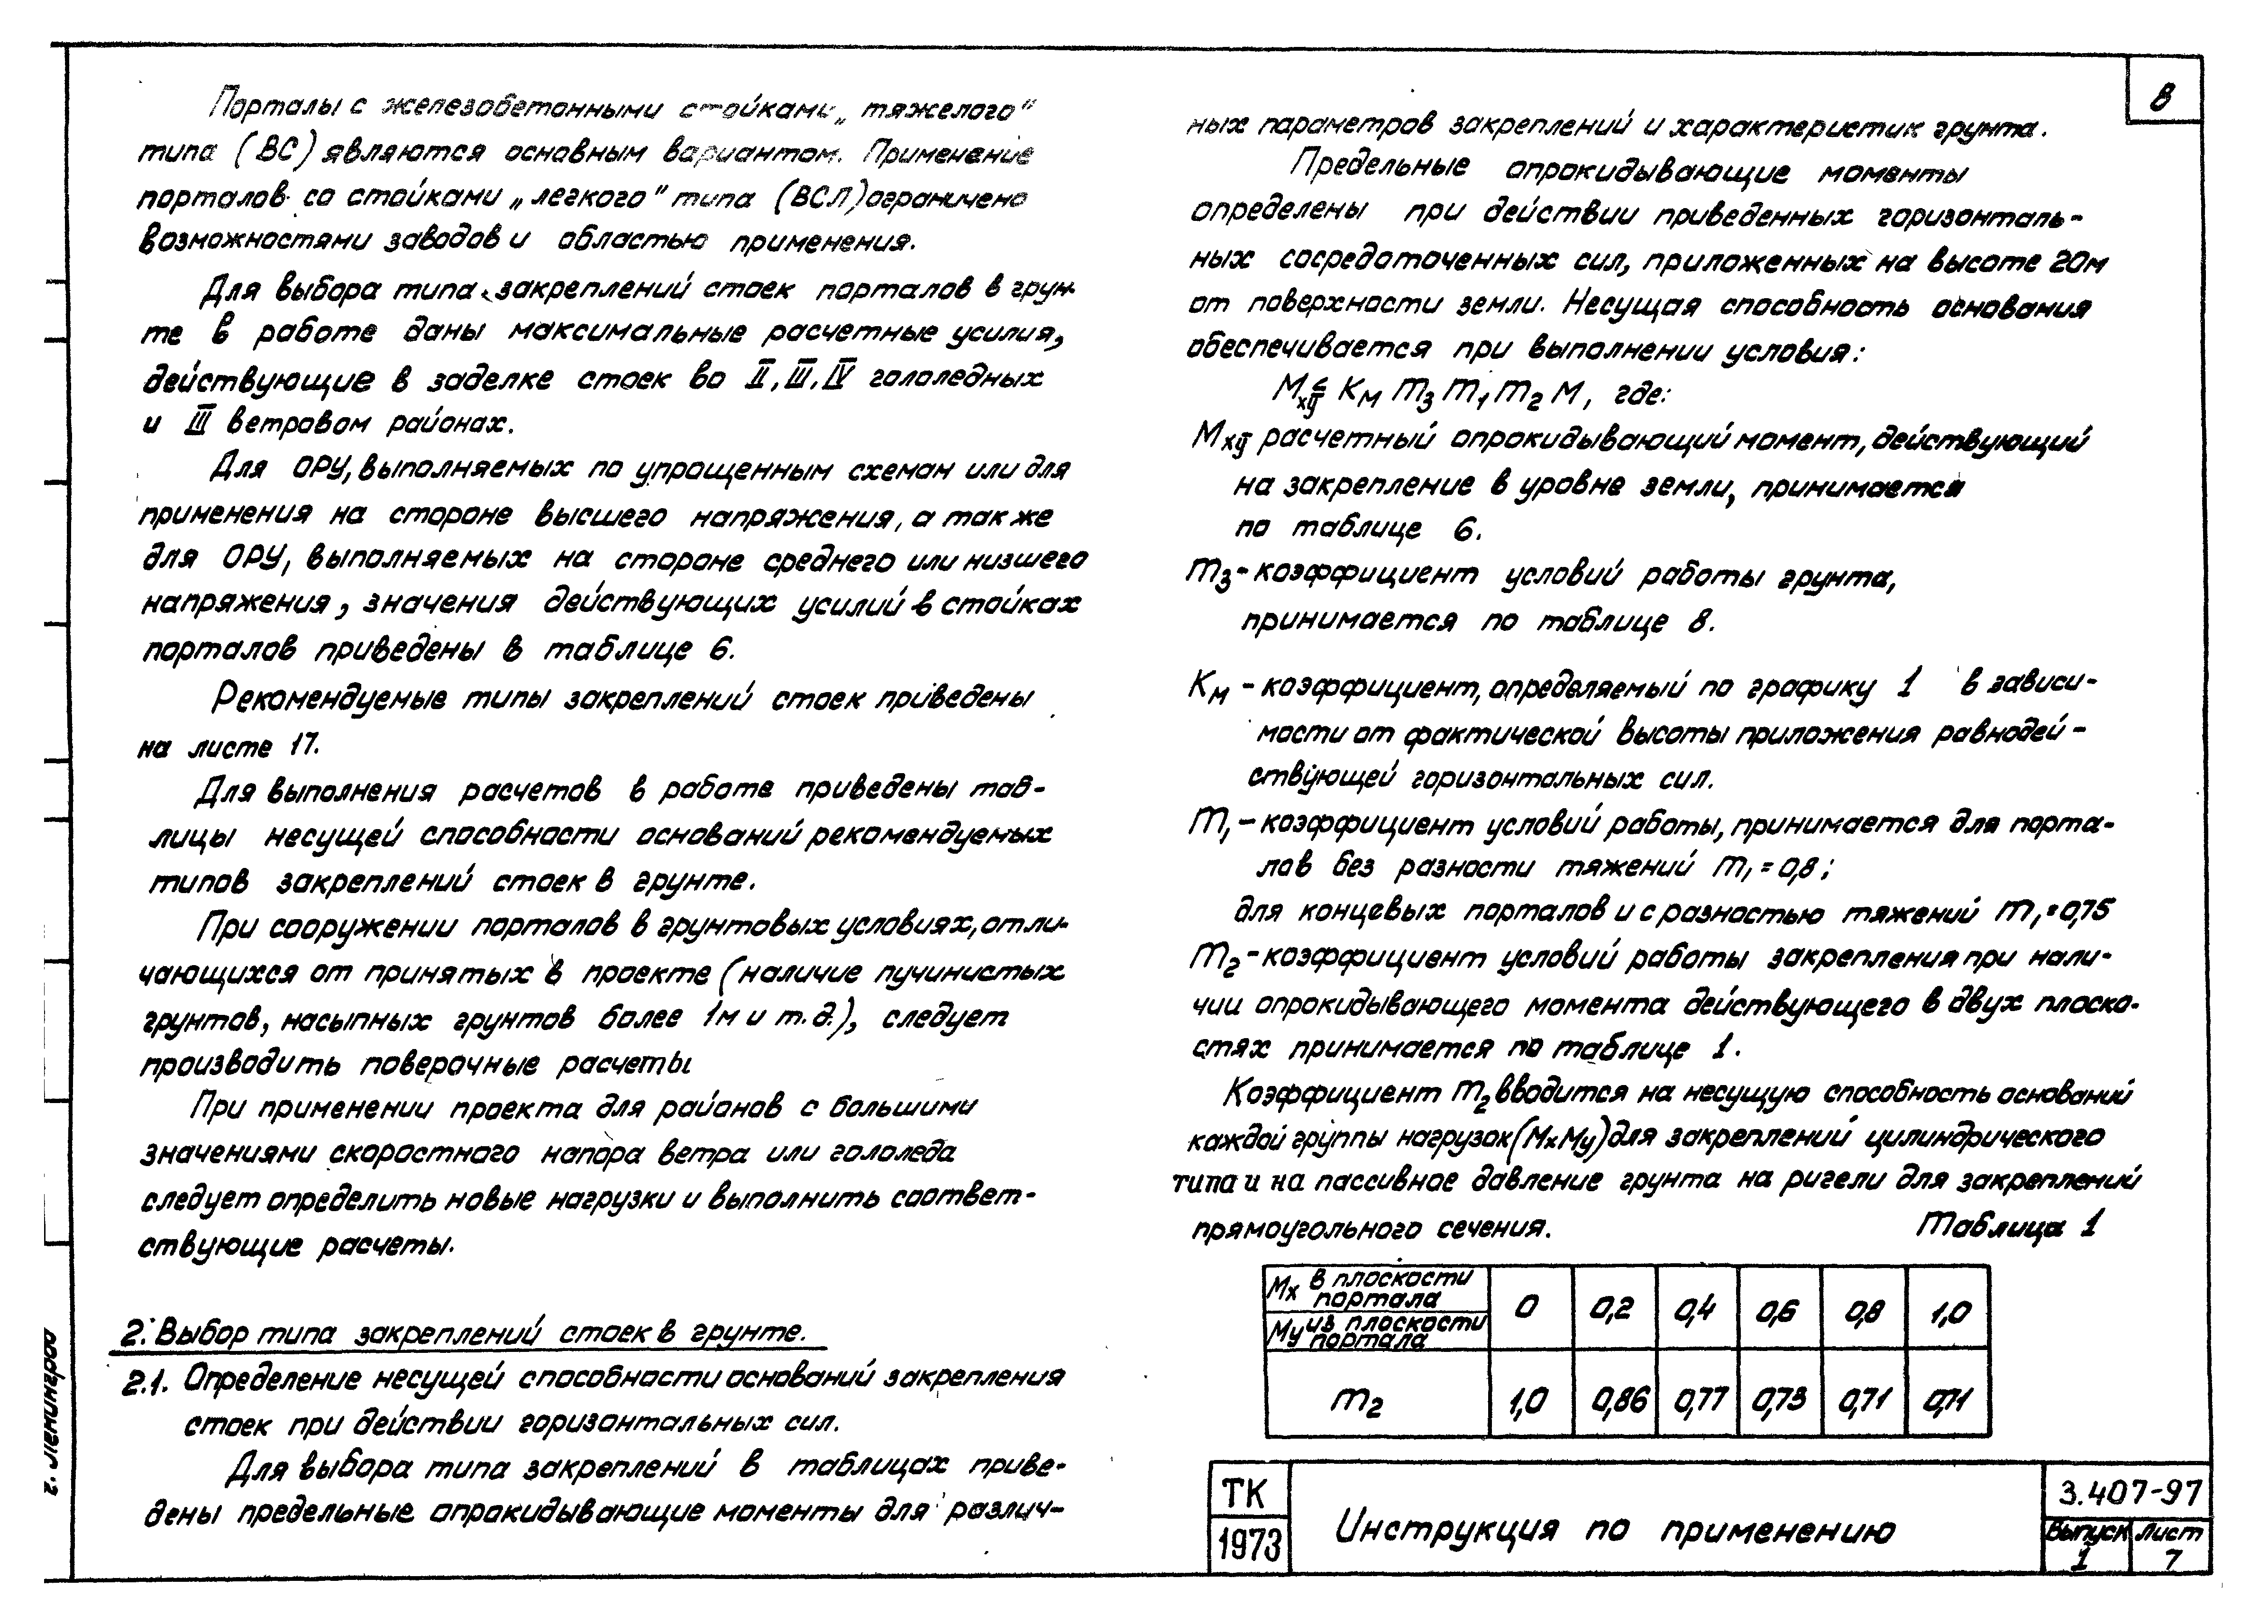 8
Порталы с железобетонными стойками „тяжелого"
типа (ВС) являются основным вариантом. Применение
порталов со стойками „легкого" типа (ВСЛ) ограничено
возможностями заводов и областью применения.
Для выбора типа закреплений стоек порталов в грун-
те в работе даны максимальные расчетные усилия,
действующие в заделке стоек во II, III, IV гололедных
и III ветровом районах.
Для ОРУ, выполняемых по упрощенным схемам или для
применения на стороне высшего напряжения, а также
для ОРУ, выполняемых на стороне среднего или низшего
напряжения, значения действующих усилий в стойках
порталов приведены в таблице 6.
Рекомендуемые типы закреплений стоек приведены
на листе 17.
Для выполнения расчетов в работе приведены таб-
лицы несущей способности оснований рекомендуемых
типов закреплений стоек в грунте.
При сооружении порталов в грунтовых условиях, отли-
чающихся от принятых в проекте (наличие пучинистых
грунтов, насыпных грунтов более 1м и т.д.), следует
производить поверочные расчеты
При применении проекта для районов с большими
значениями скоростного напора ветра или гололеда
следует определить новые нагрузки и выполнить соответ-
ствующие расчеты.
2. Выбор типа закреплений стоек в грунте.
2.1. Определение несущей способности оснований закрепления
стоек при действии горизонтальных сил.
Для выбора типа закреплений в таблицах приве-
дены предельные опрокидывающие моменты для различ-
ных параметров закреплений и характеристик грунта.
Предельные опрокидывающие моменты
определены при действии приведенных горизонталь-
ных сосредоточенных сил, приложенных на высоте 20м
от поверхности земли. Несущая способность основания
обеспечивается при выполнении условия:
Mxy ≤ Kм m3 m1 m2 M, где:
Mxy- расчетный опрокидывающий момент, действующий
на закрепление в уровне земли, принимается
по таблице 6.
m3- коэффициент условий работы грунта,
принимается по таблице 8.
Kм - коэффициент, определяемый по графику 1 в зависи-
мости от фактической высоты приложения равнодей-
ствующей горизонтальных сил.
m1 - коэффициент условий работы, принимается для порта-
лов без разности тяжений m1=0,8;
для концевых порталов и с разностью тяжений m1=0,75
m2- коэффициент условий работы закрепления при нали-
чии опрокидывающего момента действующего в двух плоско-
стях принимается по таблице 1.
Коэффициент m2 вводится на несущую способность оснований
каждой группы нагрузок (MxMy) для закреплений цилиндрического
типа и на пассивное давление грунта на ригели для закреплений
прямоугольного сечения. Таблица 1
Mx в плоскости портала / My из плоскости портала 0 0,2 0,4 0,6 0,8 1,0
m2 1,0 0,86 0,77 0,73 0,71 0,71
г. Ленинград
ТК
1973
Инструкция по применению
3.407-97
Выпуск 1
Лист 7